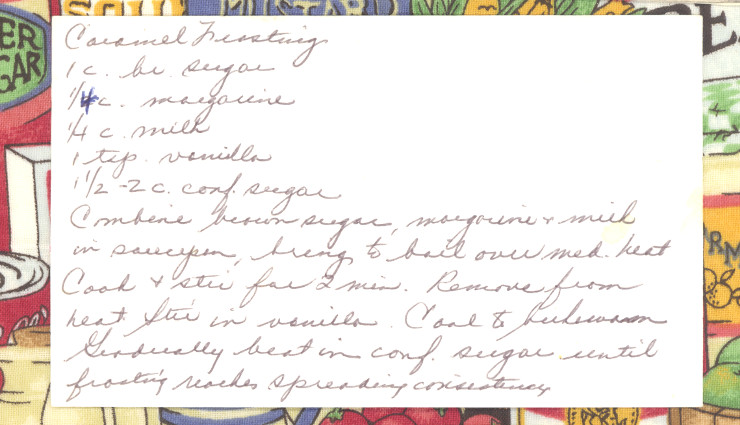 SOUP MUSTARD
ER
GAR
Caramel Frosting
1 c. br. sugar
1/4 c. margarine
1/4 c. milk
1 tsp. vanilla
1 1/2 - 2 c. conf. sugar
Combine brown sugar, margarine + milk
in saucepan, bring to boil over med. heat
Cook + stir for 2 min. Remove from
heat. Stir in vanilla. Cool to lukewarm
Gradually beat in conf. sugar until
frosting reaches spreading consistency